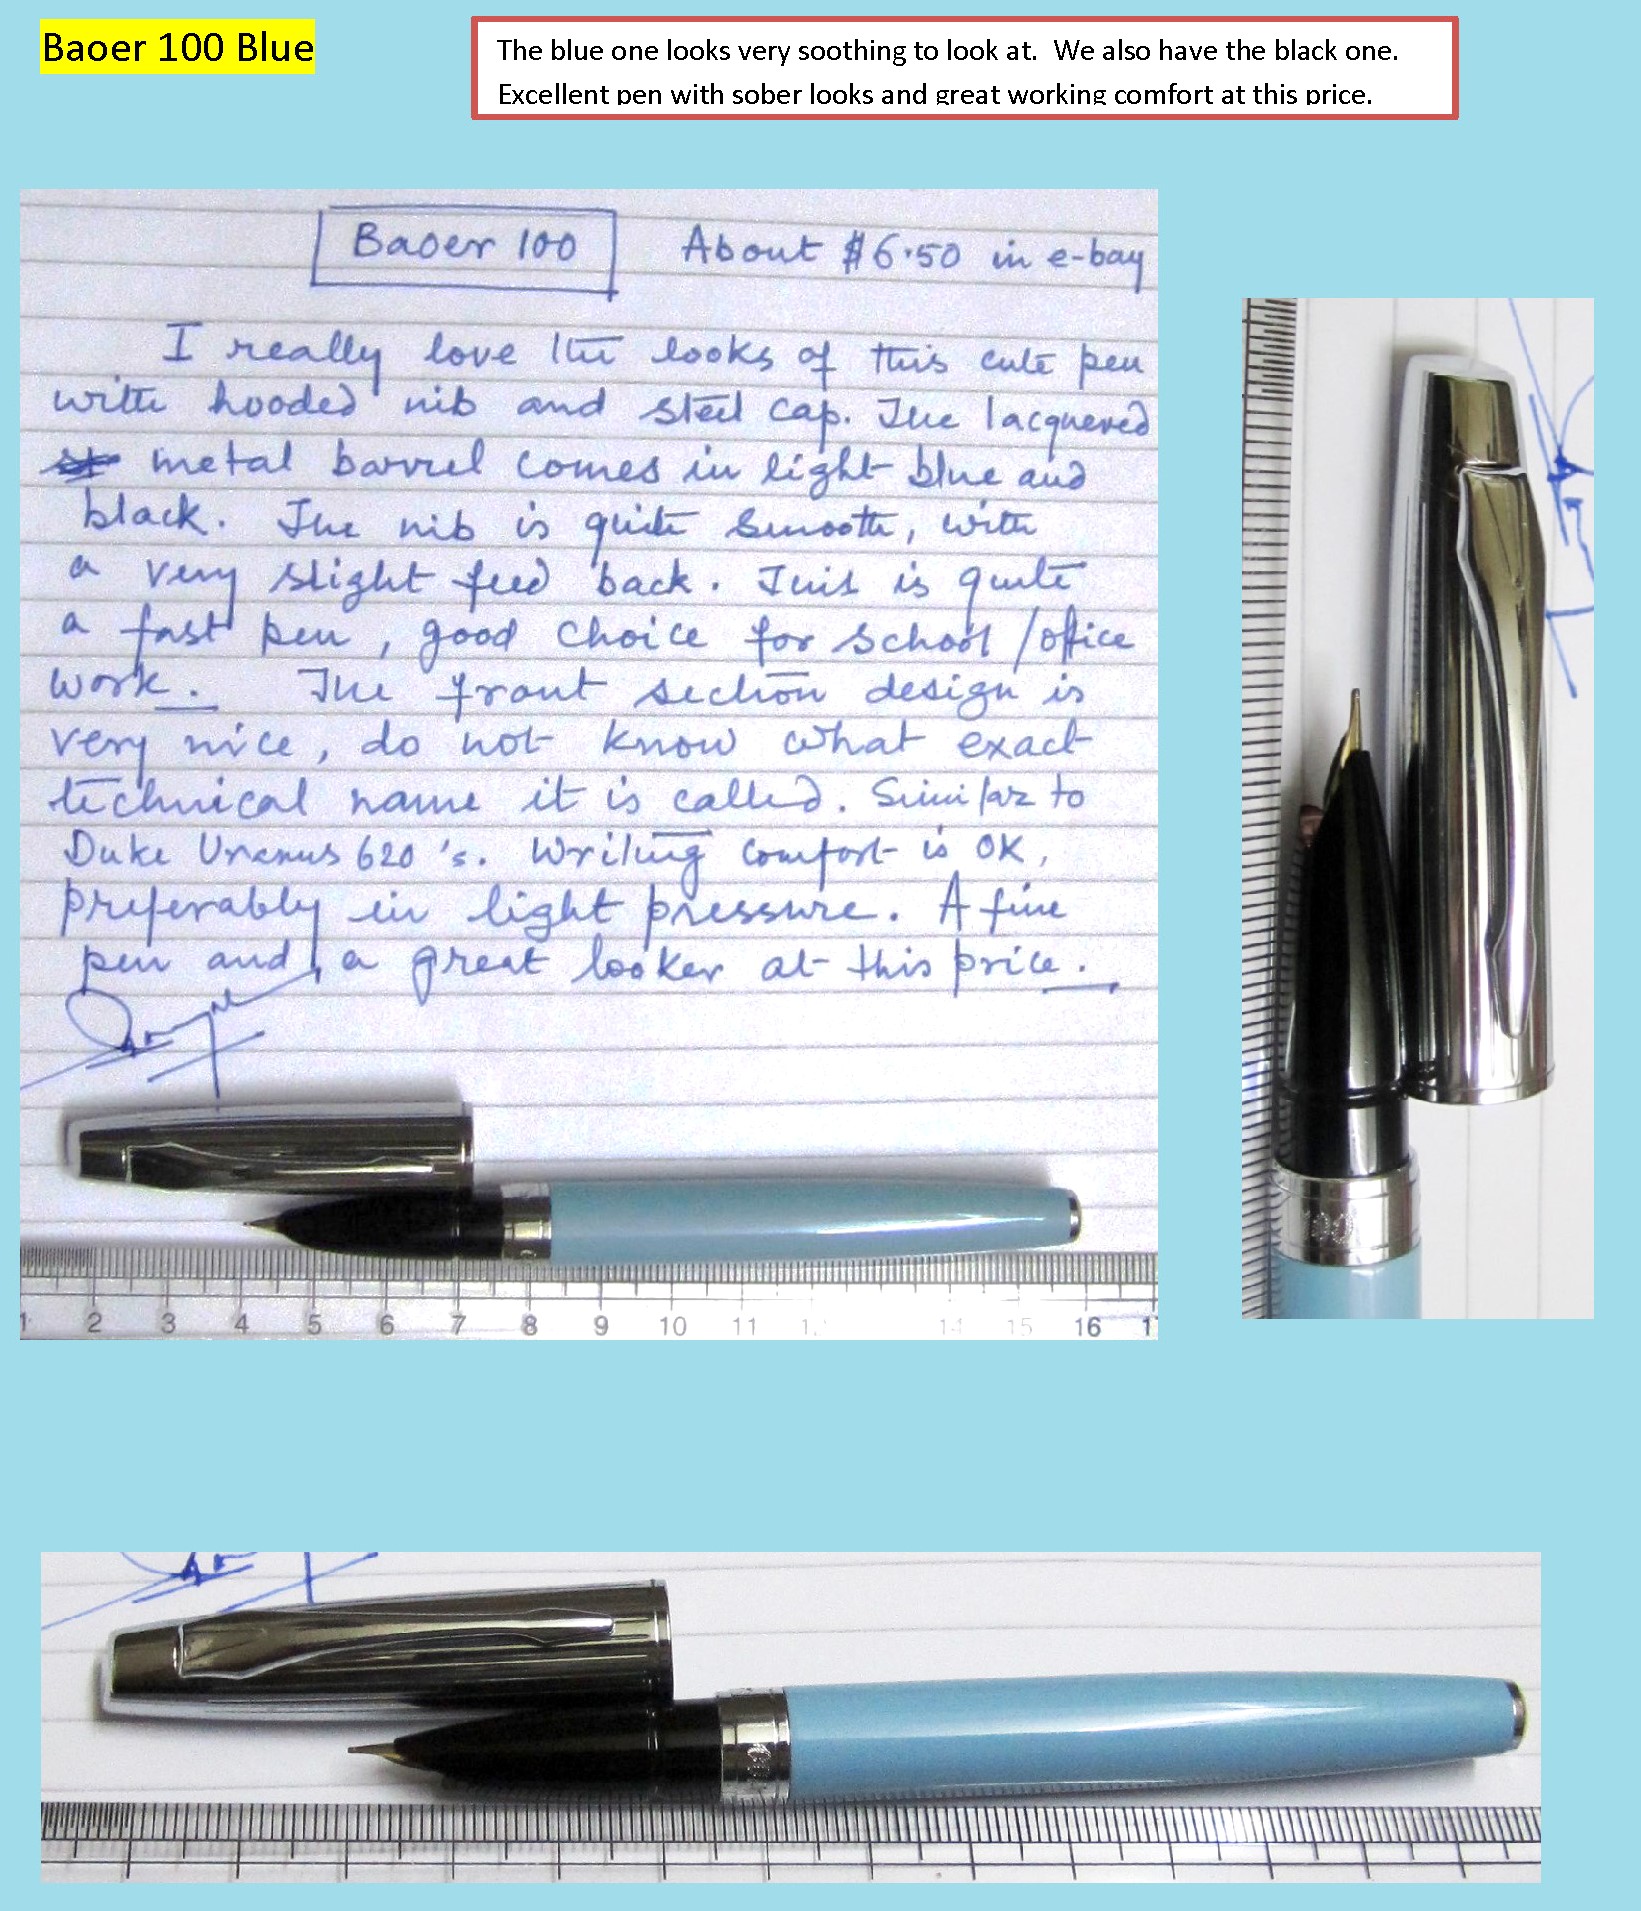 Baoer 100 Blue
The blue one looks very soothing to look at. We also have the black one.
Excellent pen with sober looks and great working comfort at this price.
Baoer 100 About $6.50 in e-bay
I really love the looks of this cute pen
with hooded nib and steel cap. The lacquered
metal barrel comes in light blue and
black. The nib is quite smooth, with
a very slight feed back. This is quite
a fast pen, good choice for school/office
work. The front section design is
very nice, do not know what exact
technical name it is called. Similar to
Duke Uranus 620's. Writing comfort is OK,
preferably in light pressure. A fine
pen and a great looker at this price.
1 2 3 4 5 6 7 8 9 10 11 14 15 16
100